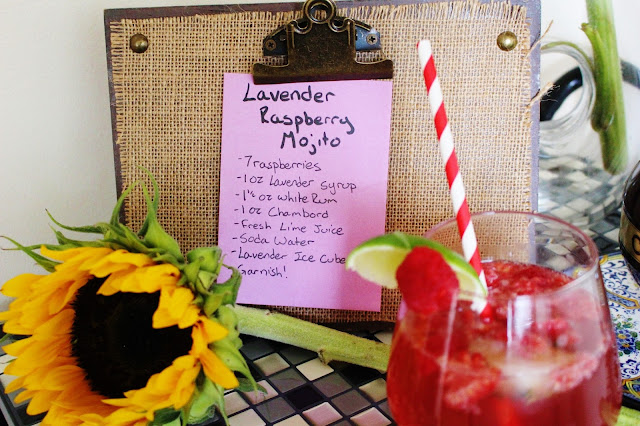 Lavender
Raspberry
Mojito
- 7 raspberries
- 1 oz Lavender Syrup
- 1½ oz White Rum
- 1 oz Chambord
- Fresh Lime Juice
- Soda Water
- Lavender Ice Cube
Garnish!